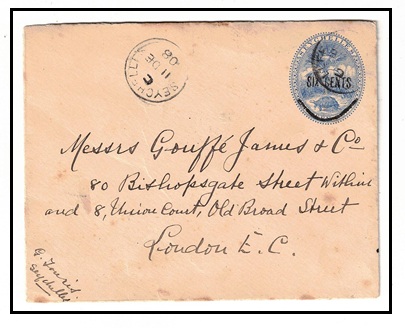 SEYCHELLES
C
11 DE
08
SEYCHELLES
SIX CENTS
Messrs Gouffé James & Co
80 Bishopsgate Street Within
and 8, Union Court, Old Broad Street
London E.C.
Seychelles